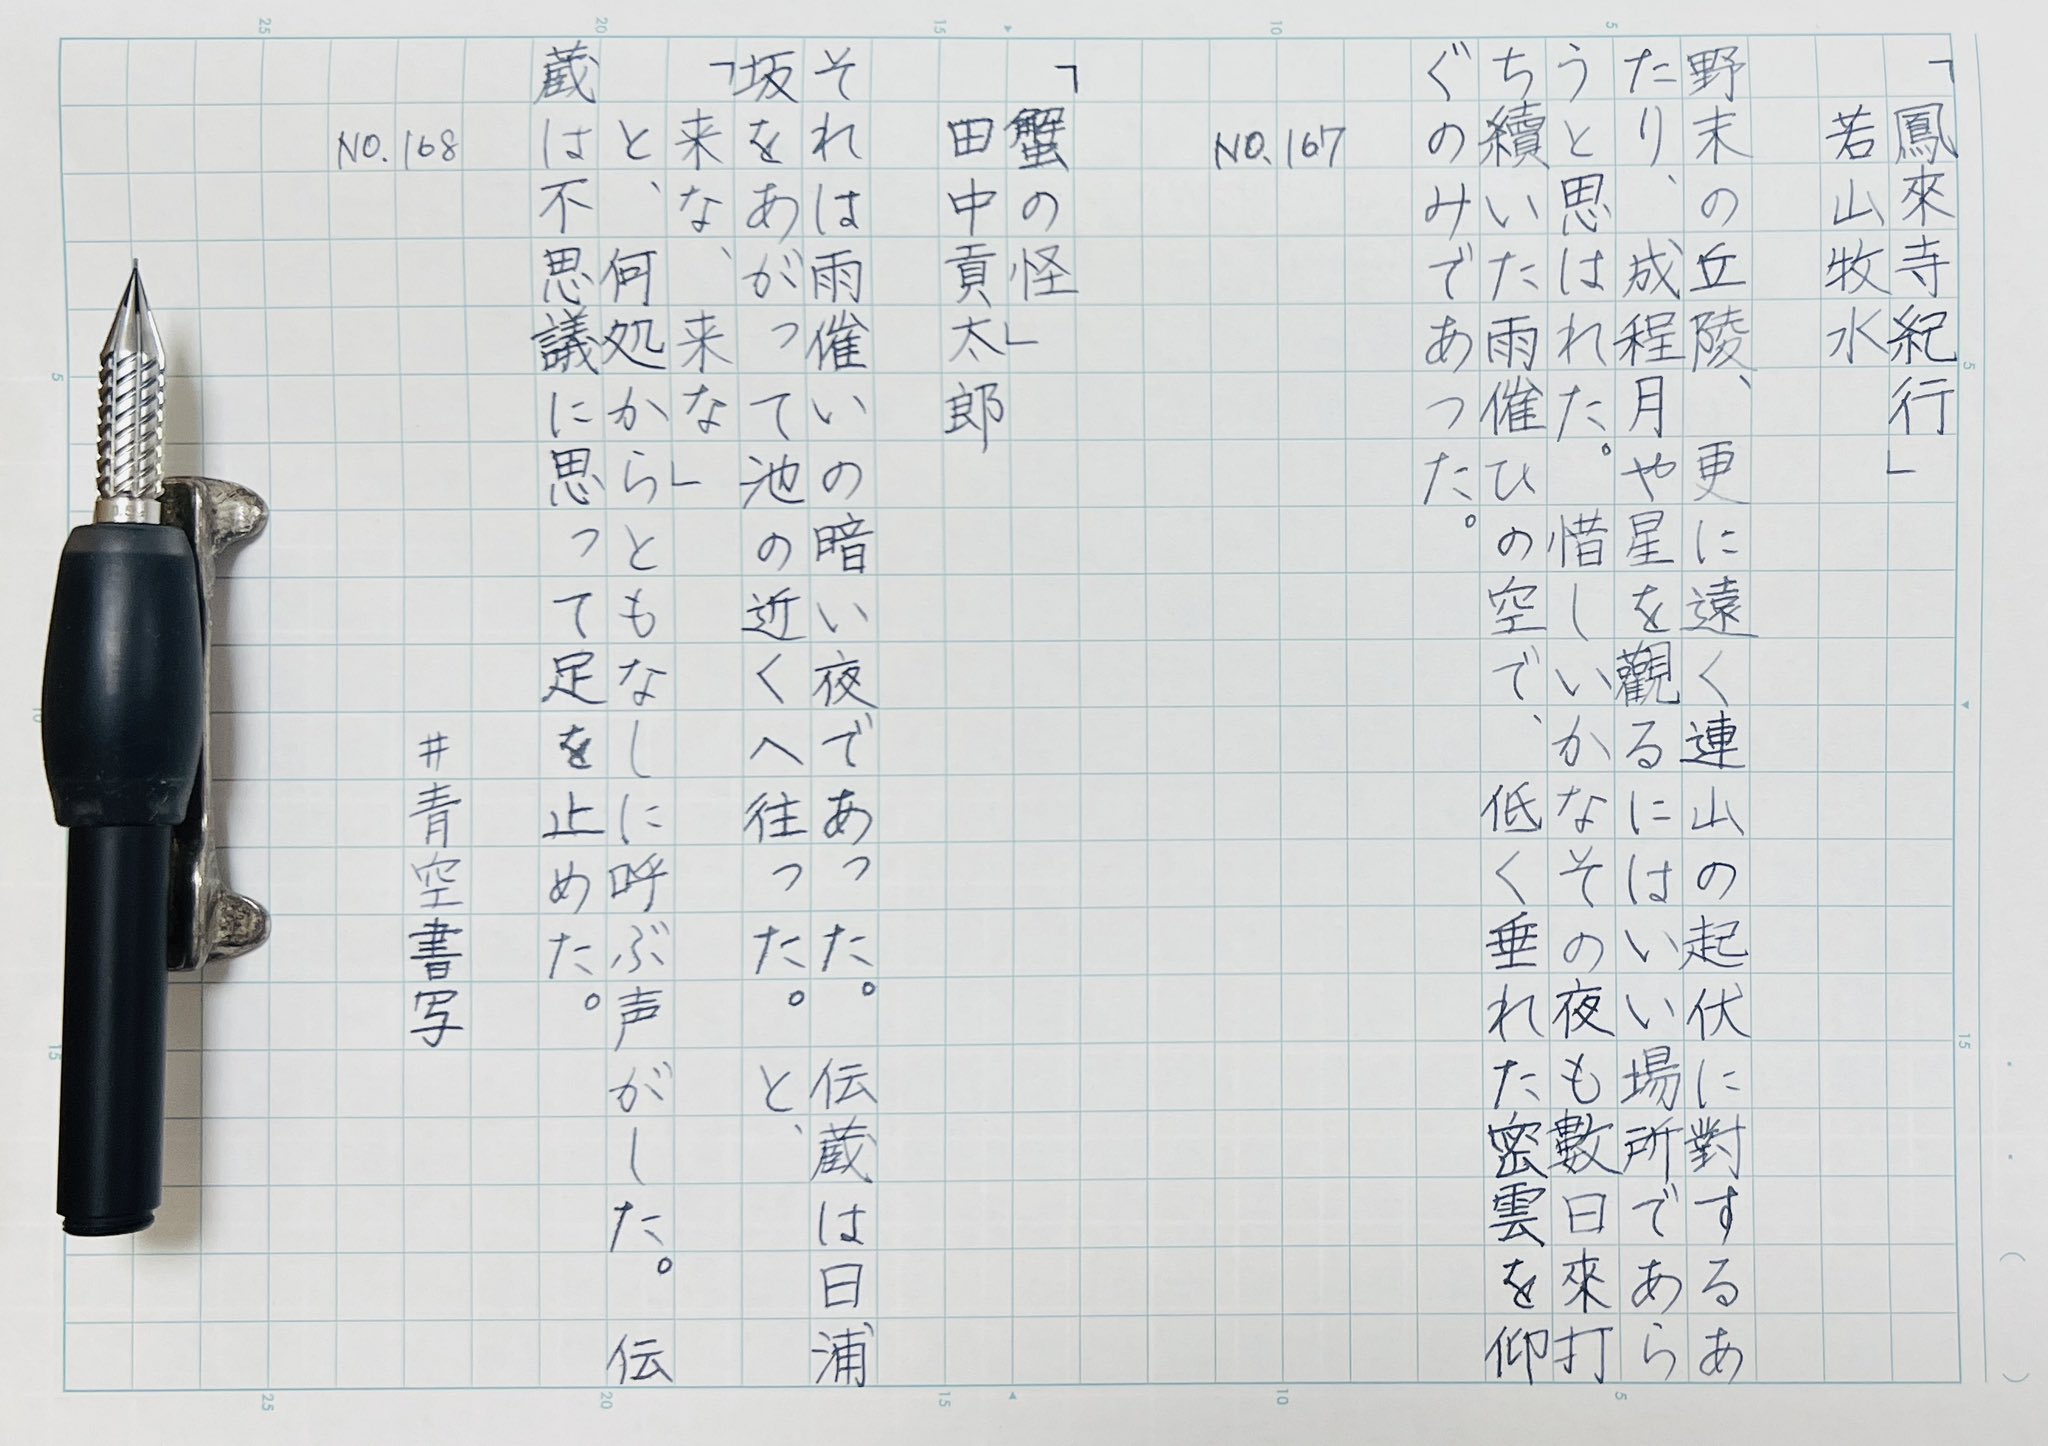 「鳳來寺紀行」
若山牧水
野末の丘陵、更に遠く連山の起伏に對するあ
たり、成程月や星を觀るにはいい場所であら
うと思はれた。惜しいかなその夜も數日來打
ち續いた雨催ひの空で、低く垂れた密雲を仰
ぐのみであった。
NO.167
「蟹の怪」
田中貢太郎
それは雨催いの暗い夜であった。伝蔵は日浦
坂をあがって池の近くへ往った。と、
「来な、来な」
と、何処からともなしに呼ぶ声がした。伝
蔵は不思議に思って足を止めた。
NO.168
#青空書写
5
10
15
20
25
5
10
15
5
15
5
10
15
20
25